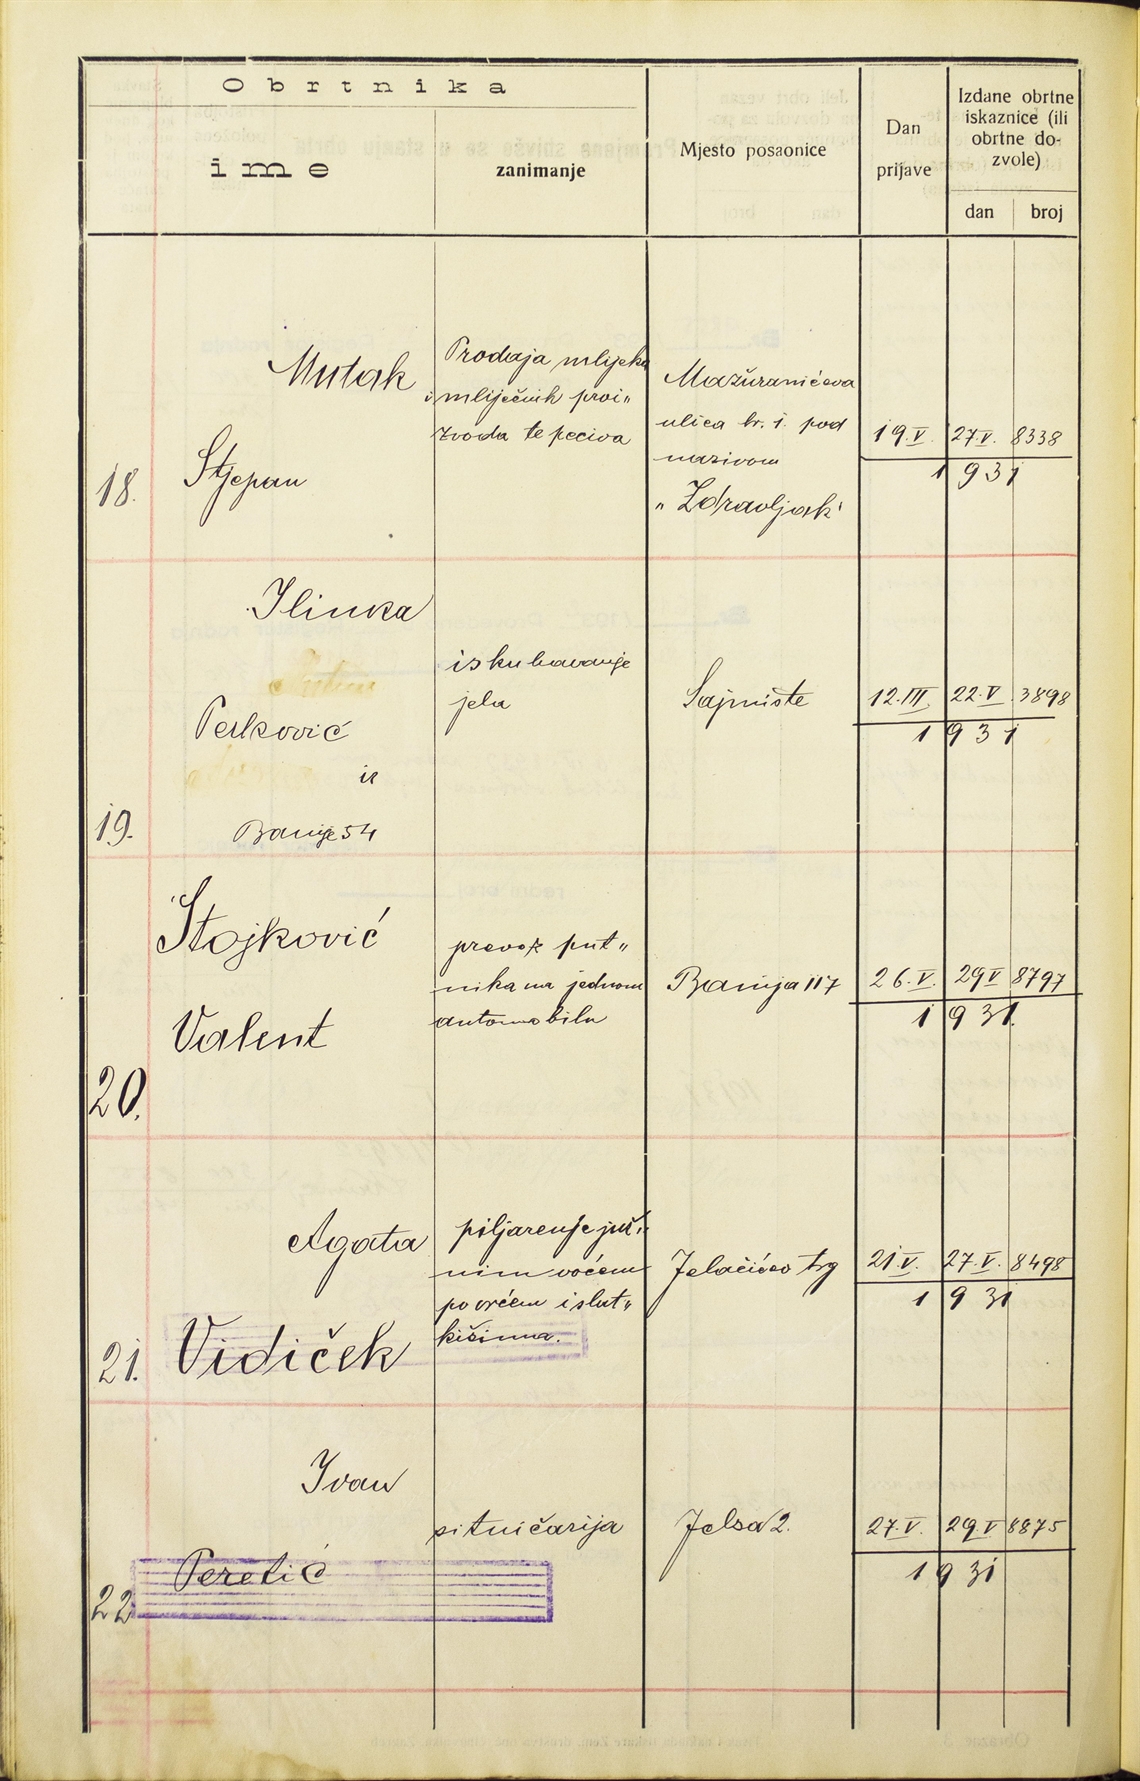 Obrtnika
ime
zanimanje
Mjesto posaonice
Dan
prijave
Izdane obrtne
iskaznice (ili
obrtne do-
zvole)
dan
broj
18.
Mutak
Stjepan
Prodaja mlijeka
i mliječnih proi„
zvoda te peciva
Mažuranićeva
ulica br. 1. pod
nazivom
„Zdravljak"
19.V.
27.V.
8338
1931
19.
Ilinka
Perković
iz
Banije 54
iskuhavanje
jela
Sajmište
12.III.
22.V.
3898
1931
20.
Stojković
Valent
prevoz put„
nika na jednom
automobilu
Banija 117
26.V.
29.V
8797
1931.
21.
Agata
Vidiček
piljarenje juž„
nim voćem
povrćem i slat„
kišima.
Jelačićev trg
21.V.
27.V.
8498
1931
22
Ivan
Peretić
sitničarija
Jelsa 2.
27.V.
29.V
8875
1931